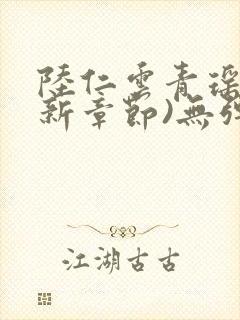 陸仁雲青瑶
新章節)無
江湖古古